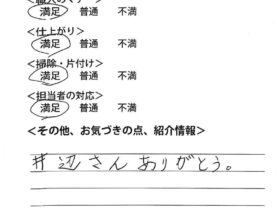 <職人のマナー>
満足 普通 不満
<仕上がり>
満足 普通 不満
<掃除・片付け>
満足 普通 不満
<担当者の対応>
満足 普通 不満
<その他、お気づきの点、紹介情報>
井辺さんありがとう。